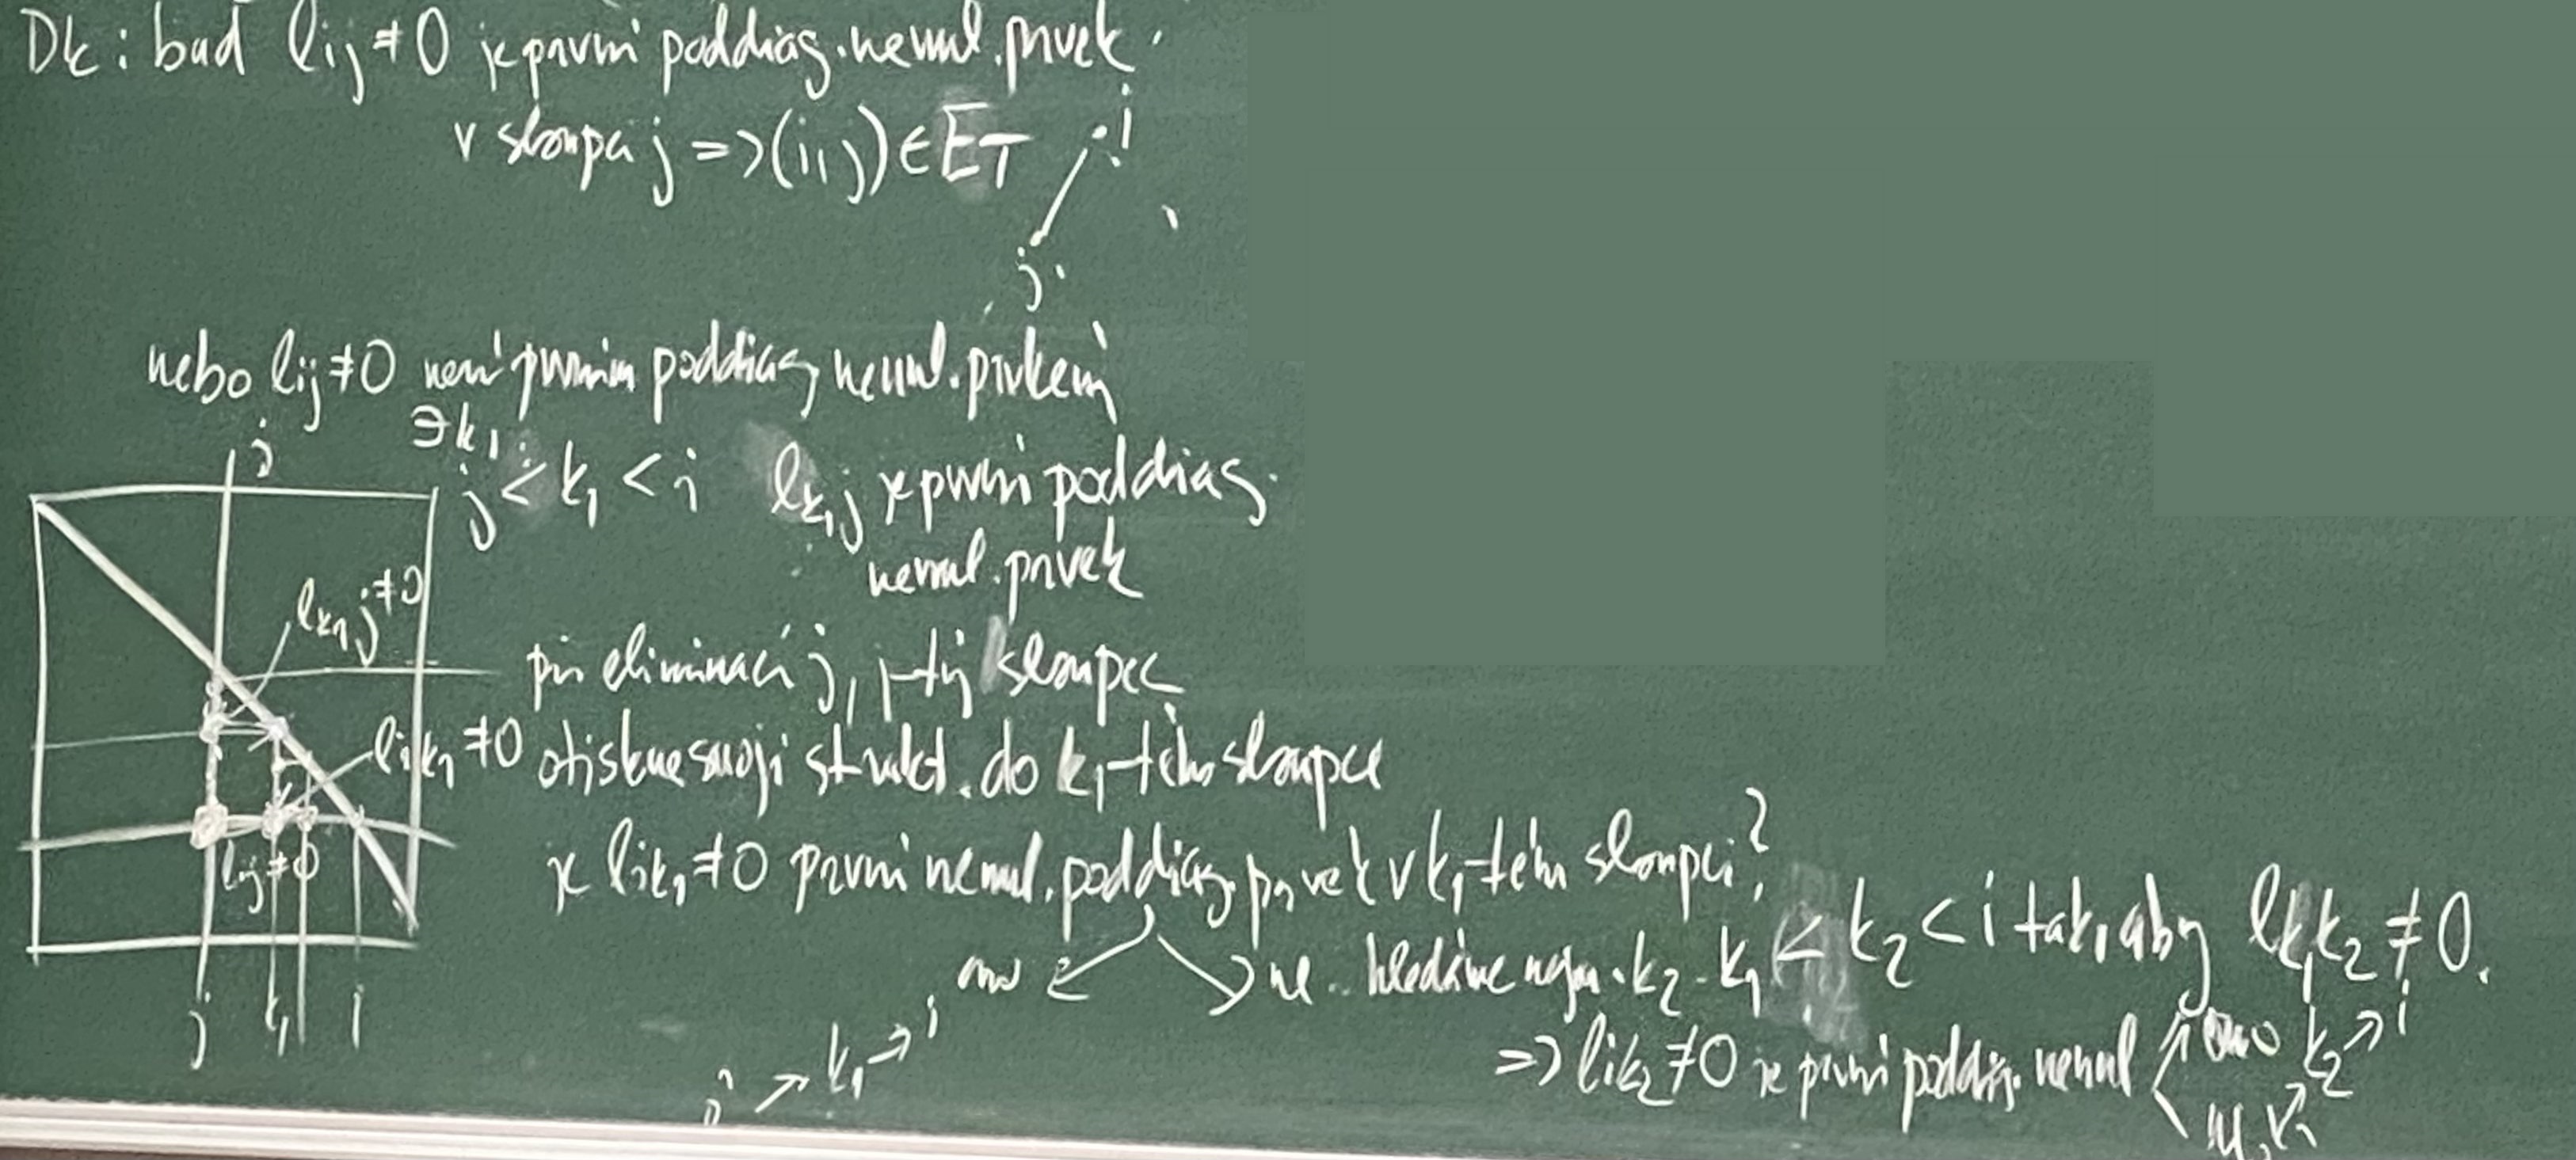 Dk: buď lij ≠ 0 je první poddiag. nenul. prvek
v sloupci j => (i,j) ∈ ET
i
j
nebo lij ≠ 0 není prvním poddiag. nenul. prvkem
∃k1:
j < k1 < i lk1j je první poddiag.
nenul. prvek
j
lk1j ≠ 0
při eliminaci j, j-tý sloupec
lik1 ≠ 0 otiskne svoji strukt. do k1-tého sloupce
lij ≠ 0
je lik1 ≠ 0 první nenul. poddiag. prvek v k1-tém sloupci?
ano ne .. hledáme nejm. k2. k1 < k2 < i tak, aby lk1k2 ≠ 0.
j k1 i
j → k1 → i
=> lik2 ≠ 0 je první poddiag. nenul ano k2 → i